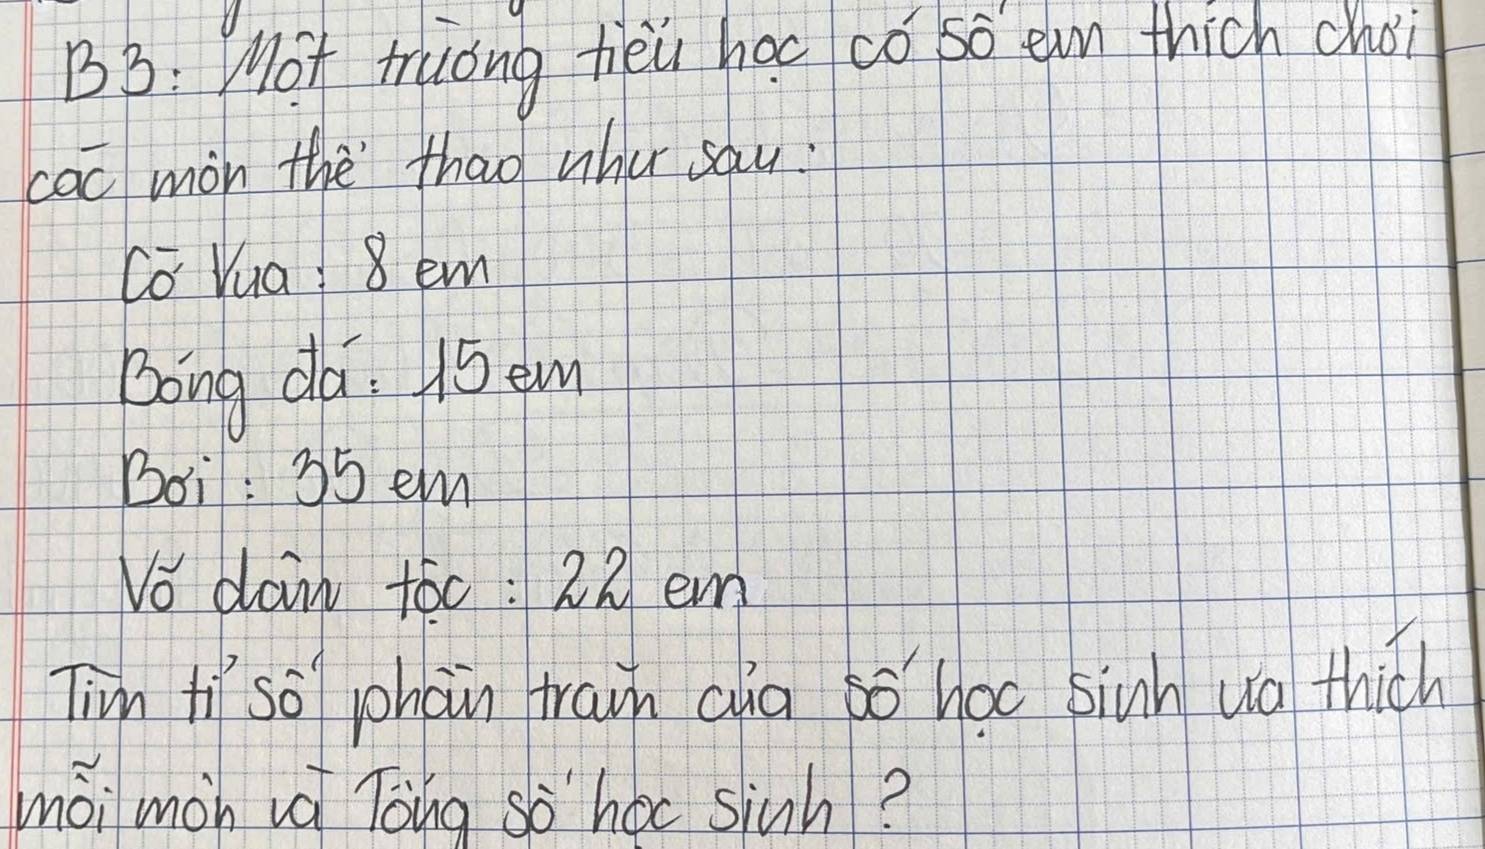 B3: Một trường tiểu học có số em thích chơi
các môn thể thao như sau:
Cờ Vua: 8 em
Bóng đá: 15 em
Bơi: 35 em
Võ dân tộc: 22 em
Tìm tỉ số phần trăm của số học sinh ưa thích
mỗi môn và Tổng số học sinh?